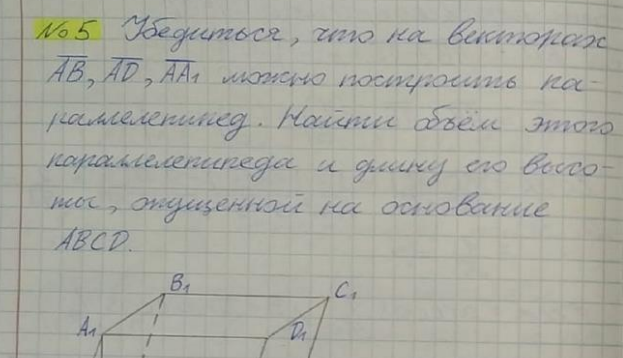 №5 Убедиться, что на векторах
AB, AD, AA1 можно построить па-
раллелепипед. Найти объём этого
параллелепипеда и длину его высо-
ты, опущенной на основание
ABCD.
B1 C1
A1 D1